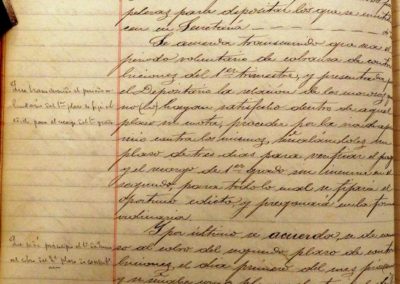 peleras para depositar los que se
cen en Secretaría
Se acuerda transcurrido que sea el
periodo voluntario de cobranza de contri-
buciones del 1er trimestre, y presentada
el Depositario la relación de los morosos
no hayan satisfecho dentro de aquel
plazo su cuota, proceda por la vía de apre-
mio contra los mismos, señalándoles un
plazo de tres días para verificar el pago
y el recargo de 1er grado
segundo, para todo lo cual se fijará el
oportuno edicto y pregonará en la forma
ordinaria.
Y por último se acuerda, se de comien-
zo al cobro del segundo plazo de contri-
buciones el día primero del mes próximo
Que transcurrido el periodo vo-
luntario del 1er plazo se fije el
edicto para el recargo del 1er grado
Que dé principio el 1º de
al cobro del 2º plazo de contribs.